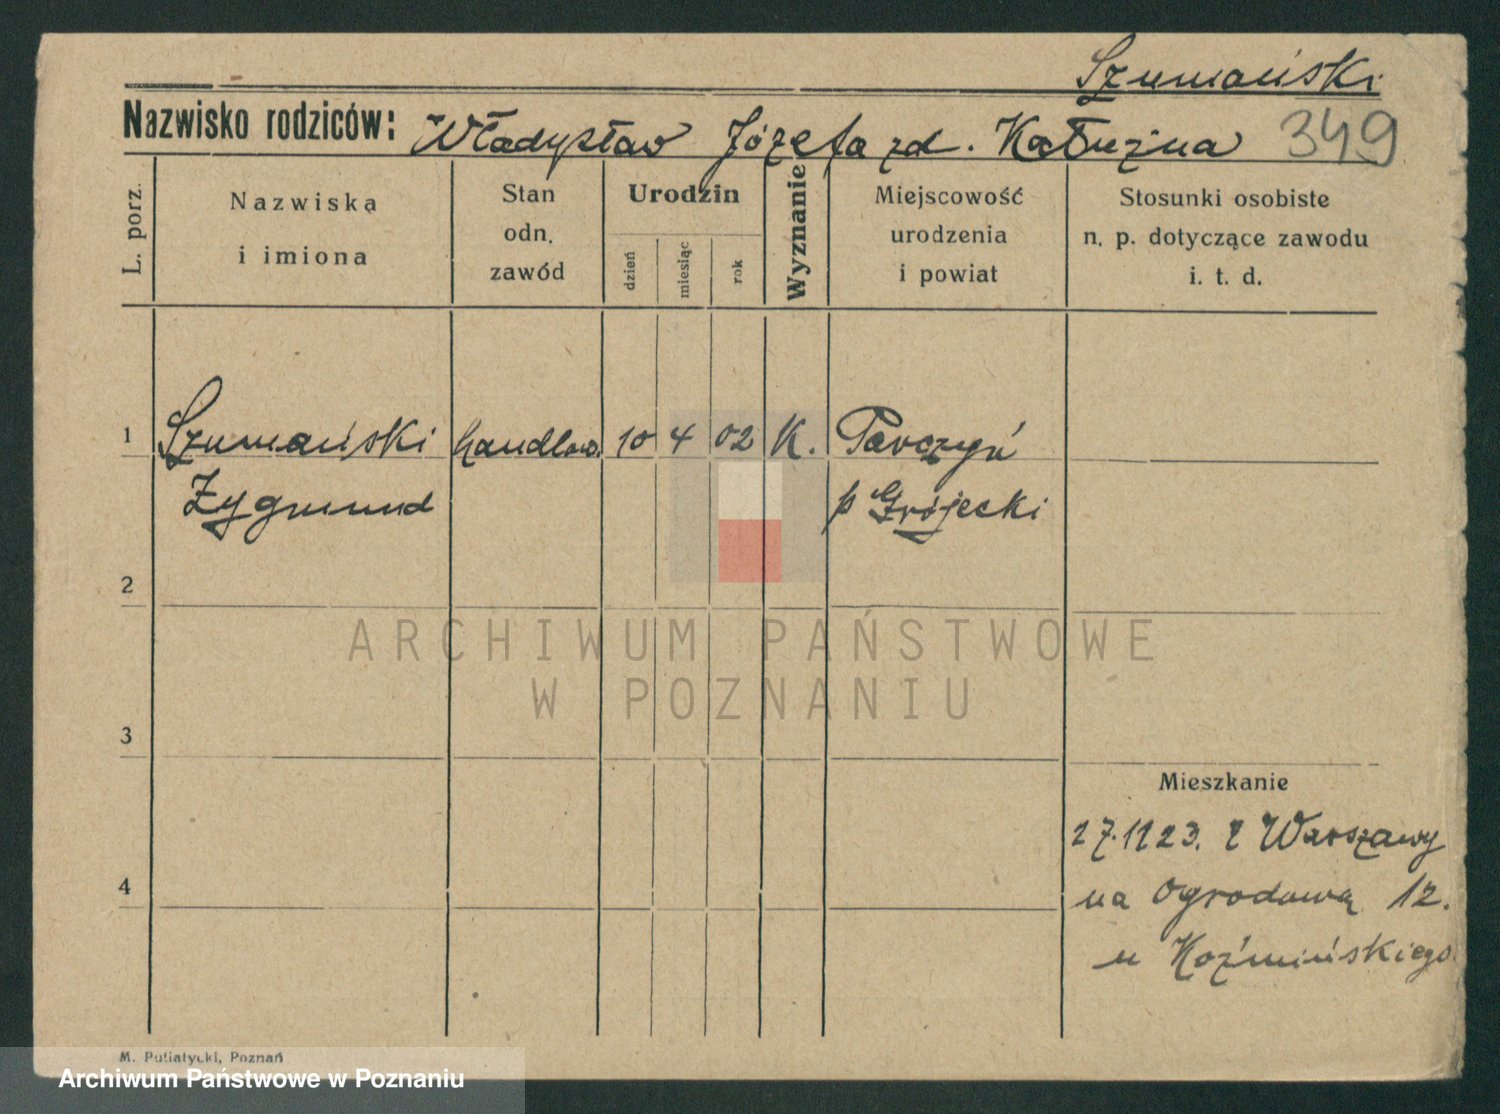 Szumański
Nazwisko rodziców: Władysław Józefa zd. Kałużna 349
L. porz.
Nazwiska
i imiona
Stan
odn.
zawód
Urodzin
dzień
miesiąc
rok
Wyznanie
Miejscowość
urodzenia
i powiat
Stosunki osobiste
n. p. dotyczące zawodu
i. t. d.
1 Szumański handlow. 10 4 02 K. Tarczyń
Zygmund p Grójecki
2
ARCHIWUM PAŃSTWOWE
W POZNANIU
3
Mieszkanie
27.11 23. z Warszawy
4
na Ogrodową 12.
u Koźmińskiego.
M. Putiatycki, Poznań
Archiwum Państwowe w Poznaniu